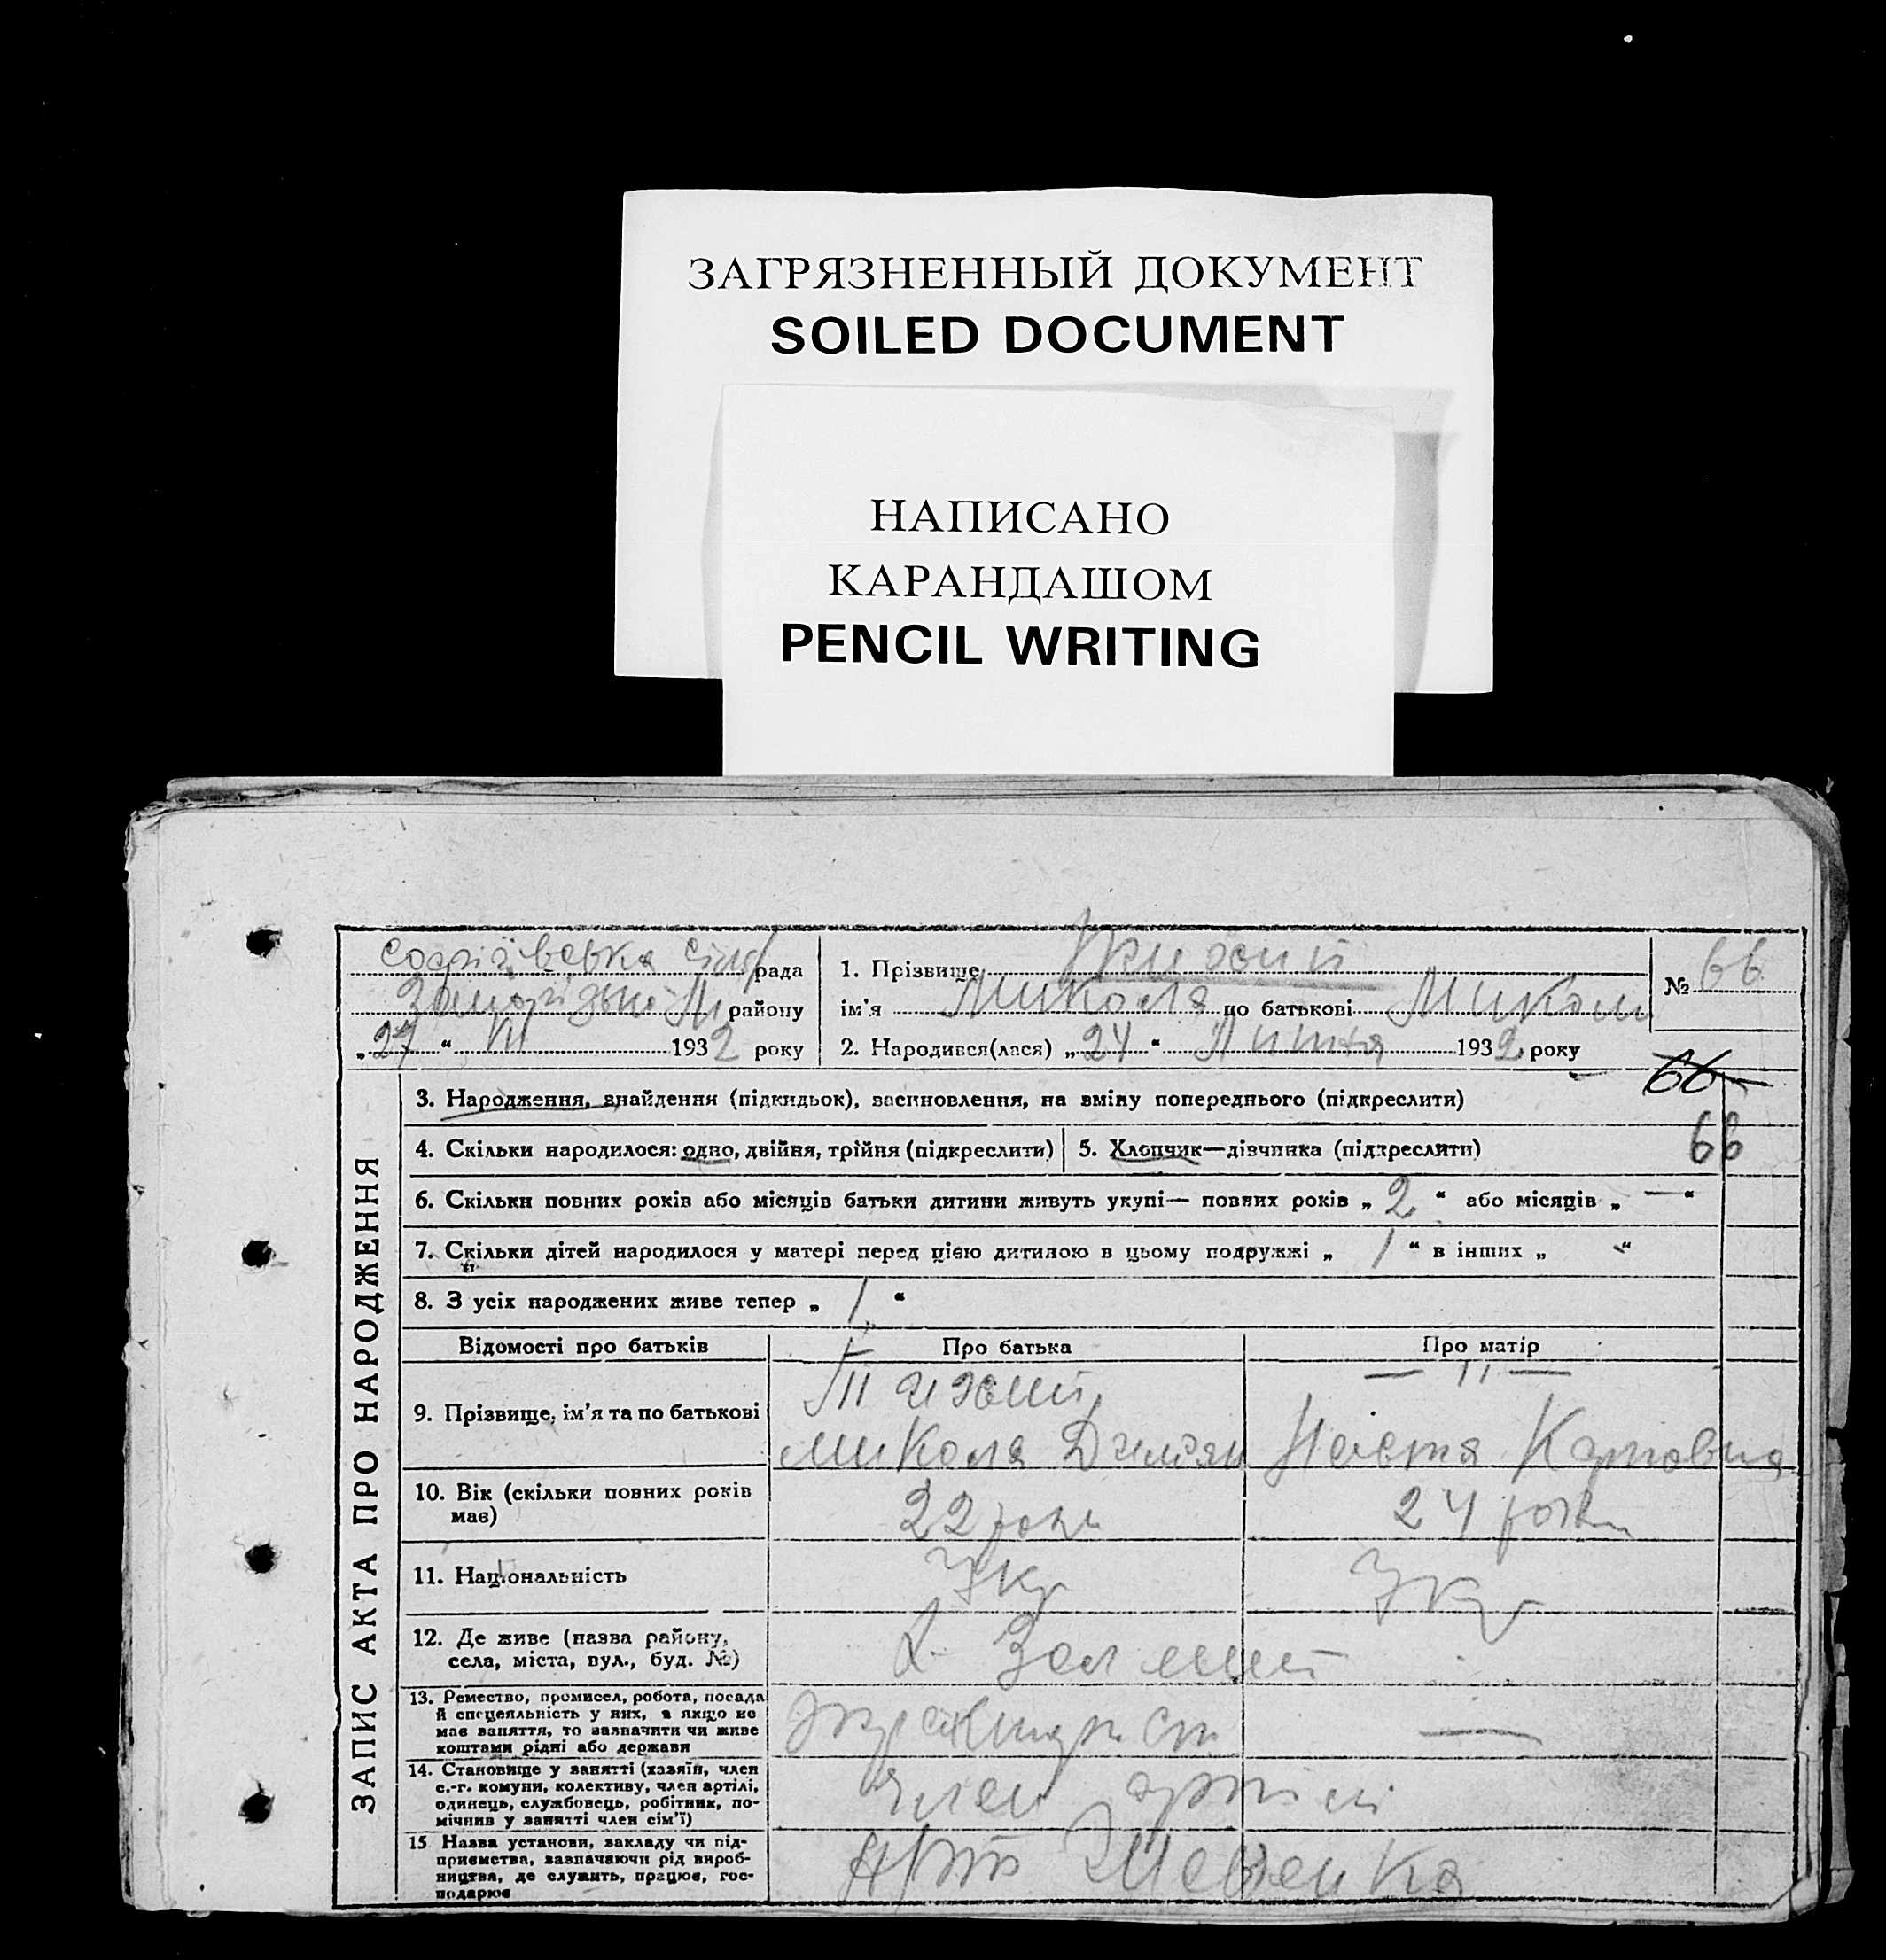 ЗАГРЯЗНЕННЫЙ ДОКУМЕНТ
SOILED DOCUMENT
НАПИСАНО
КАРАНДАШОМ
PENCIL WRITING
ЗАПИС АКТА ПРО НАРОДЖЕННЯ
Софіївська сіль рада
району
„27“ VII 1932 року
1. Прізвище
ім'я Микола по батькові Микол
2. Народився(лася) „24“ Липня 1932 року
№ 66
66
3. Народження, знайдення (підкидьок), засиновлення, на зміну попереднього (підкреслити)
4. Скільки народилося: одно, двійня, трійня (підкреслити)
5. Хлопчик—дівчинка (підкреслити)
66
6. Скільки повних років або місяців батьки дитини живуть укупі— повних років „2“ або місяців „—“
7. Скільки дітей народилося у матері перед цією дитиною в цьому подружжі „1“ в інших „-“
8. З усіх народжених живе тепер „1“
Відомості про батьків
Про батька
Про матір
9. Прізвище, ім'я та по батькові
— 〃 —
Микола Карповна
10. Вік (скільки повних років
має)
22 роки
24 роки
11. Національність
Укр
Укр
12. Де живе (назва району,
села, міста, вул., буд. №)
13. Ремество, промисел, робота, посада
й спецеяльність у них, а якщо не
має заняття, то зазначити чи живе
коштами рідні або держави
—
14. Становище у занятті (хазяїн, член
с.-г. комуни, колективу, член артілі,
одинець, службовець, робітник, по-
мічник у занятті член сім'ї)
Член артілі
15. Назва установи, закладу чи під-
приємства, зазначаючи рід вироб-
ництва, де служить, працює, гос-
подарює
Арт Шевченка